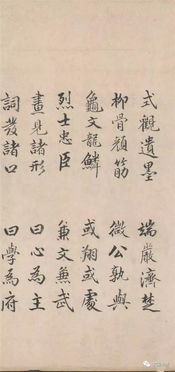 式觀遺墨 端嚴濟楚
柳骨顏筋 微公孰與
龜文龍鱗 或翔或處
烈士忠臣 兼文兼武
畫見諸形 曰心為主
詞發諸口 曰學為府